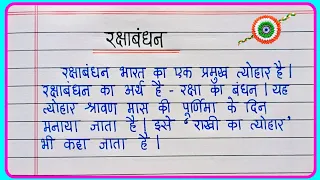 रक्षाबंधन
रक्षाबंधन भारत का एक प्रमुख त्योहार है |
रक्षाबंधन का अर्थ है - रक्षा का बंधन | यह
त्योहार श्रावण मास की पूर्णिमा के दिन
मनाया जाता है | इसे 'राखी का त्योहार'
भी कहा जाता है |